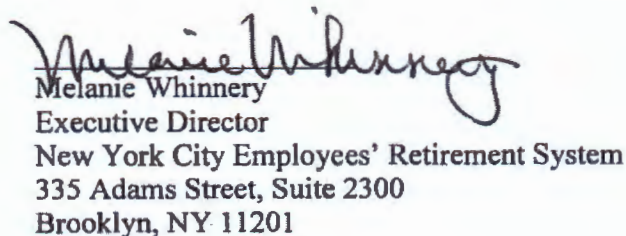 Melanie Whinnery
Melanie Whinnery
Executive Director
New York City Employees' Retirement System
335 Adams Street, Suite 2300
Brooklyn, NY 11201